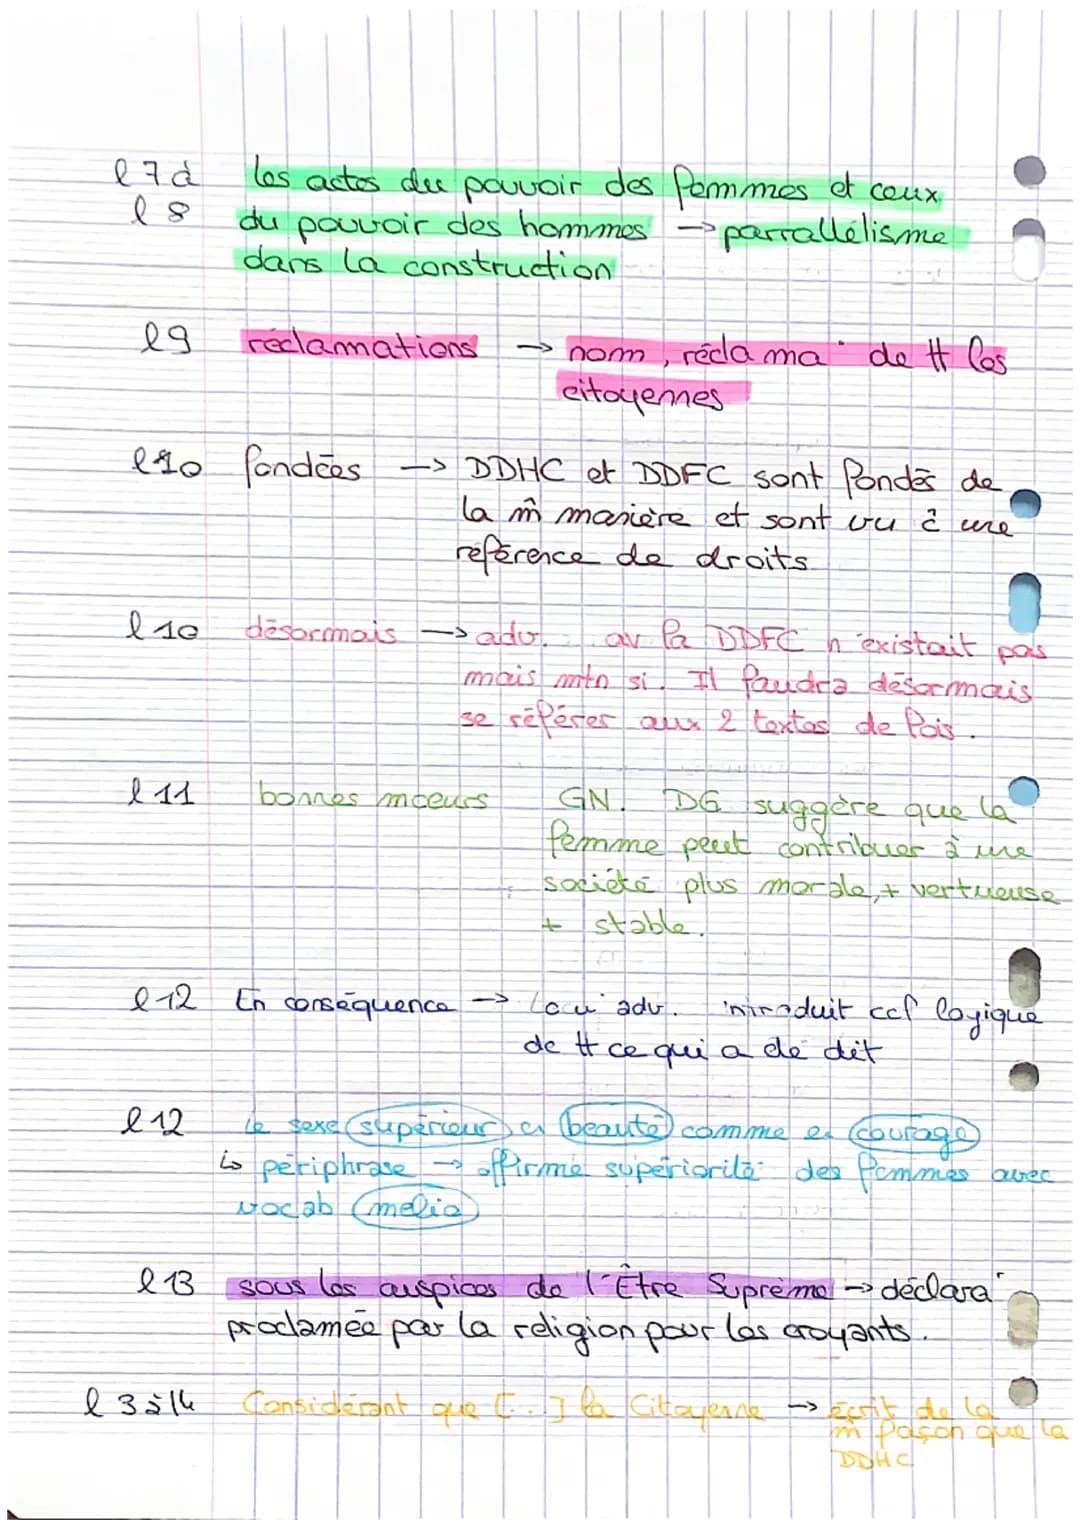 l 7 à les actes du pouvoir des femmes et ceux
l 8 du pouvoir des hommes -> parrallélisme
dans la construction
l9 réclamations -> nom, réclama° de tt les
citoyennes
l10 fondées -> DDHC et DDFC sont fondés de
la m̂ manière et sont vu ê une
référence de droits
l 10 désormais -> adv. av la DDFC n'existait pas
mais mtn si. Il faudra désormais
se référer aux 2 textes de lois.
l 11 bonnes mœurs GN. DG suggère que la
femme peut contribuer à une
société plus morale, + vertueuse
+ stable.
l 12 En conséquence -> locu° adv. introduit ccl° logique
de tt ce qui a été dit
l 12 le sexe supérieur en beauté comme en courage
↳ périphrase -> affirme supériorité des femmes avec
vocab mélio
l 13 sous les auspices de l'Être Suprême -> déclara°
proclamée par la religion pour les croyants.
l 3 à 14 Considérant que [...] la Citoyenne -> écrit de la
m̂ façon que la
DDHC